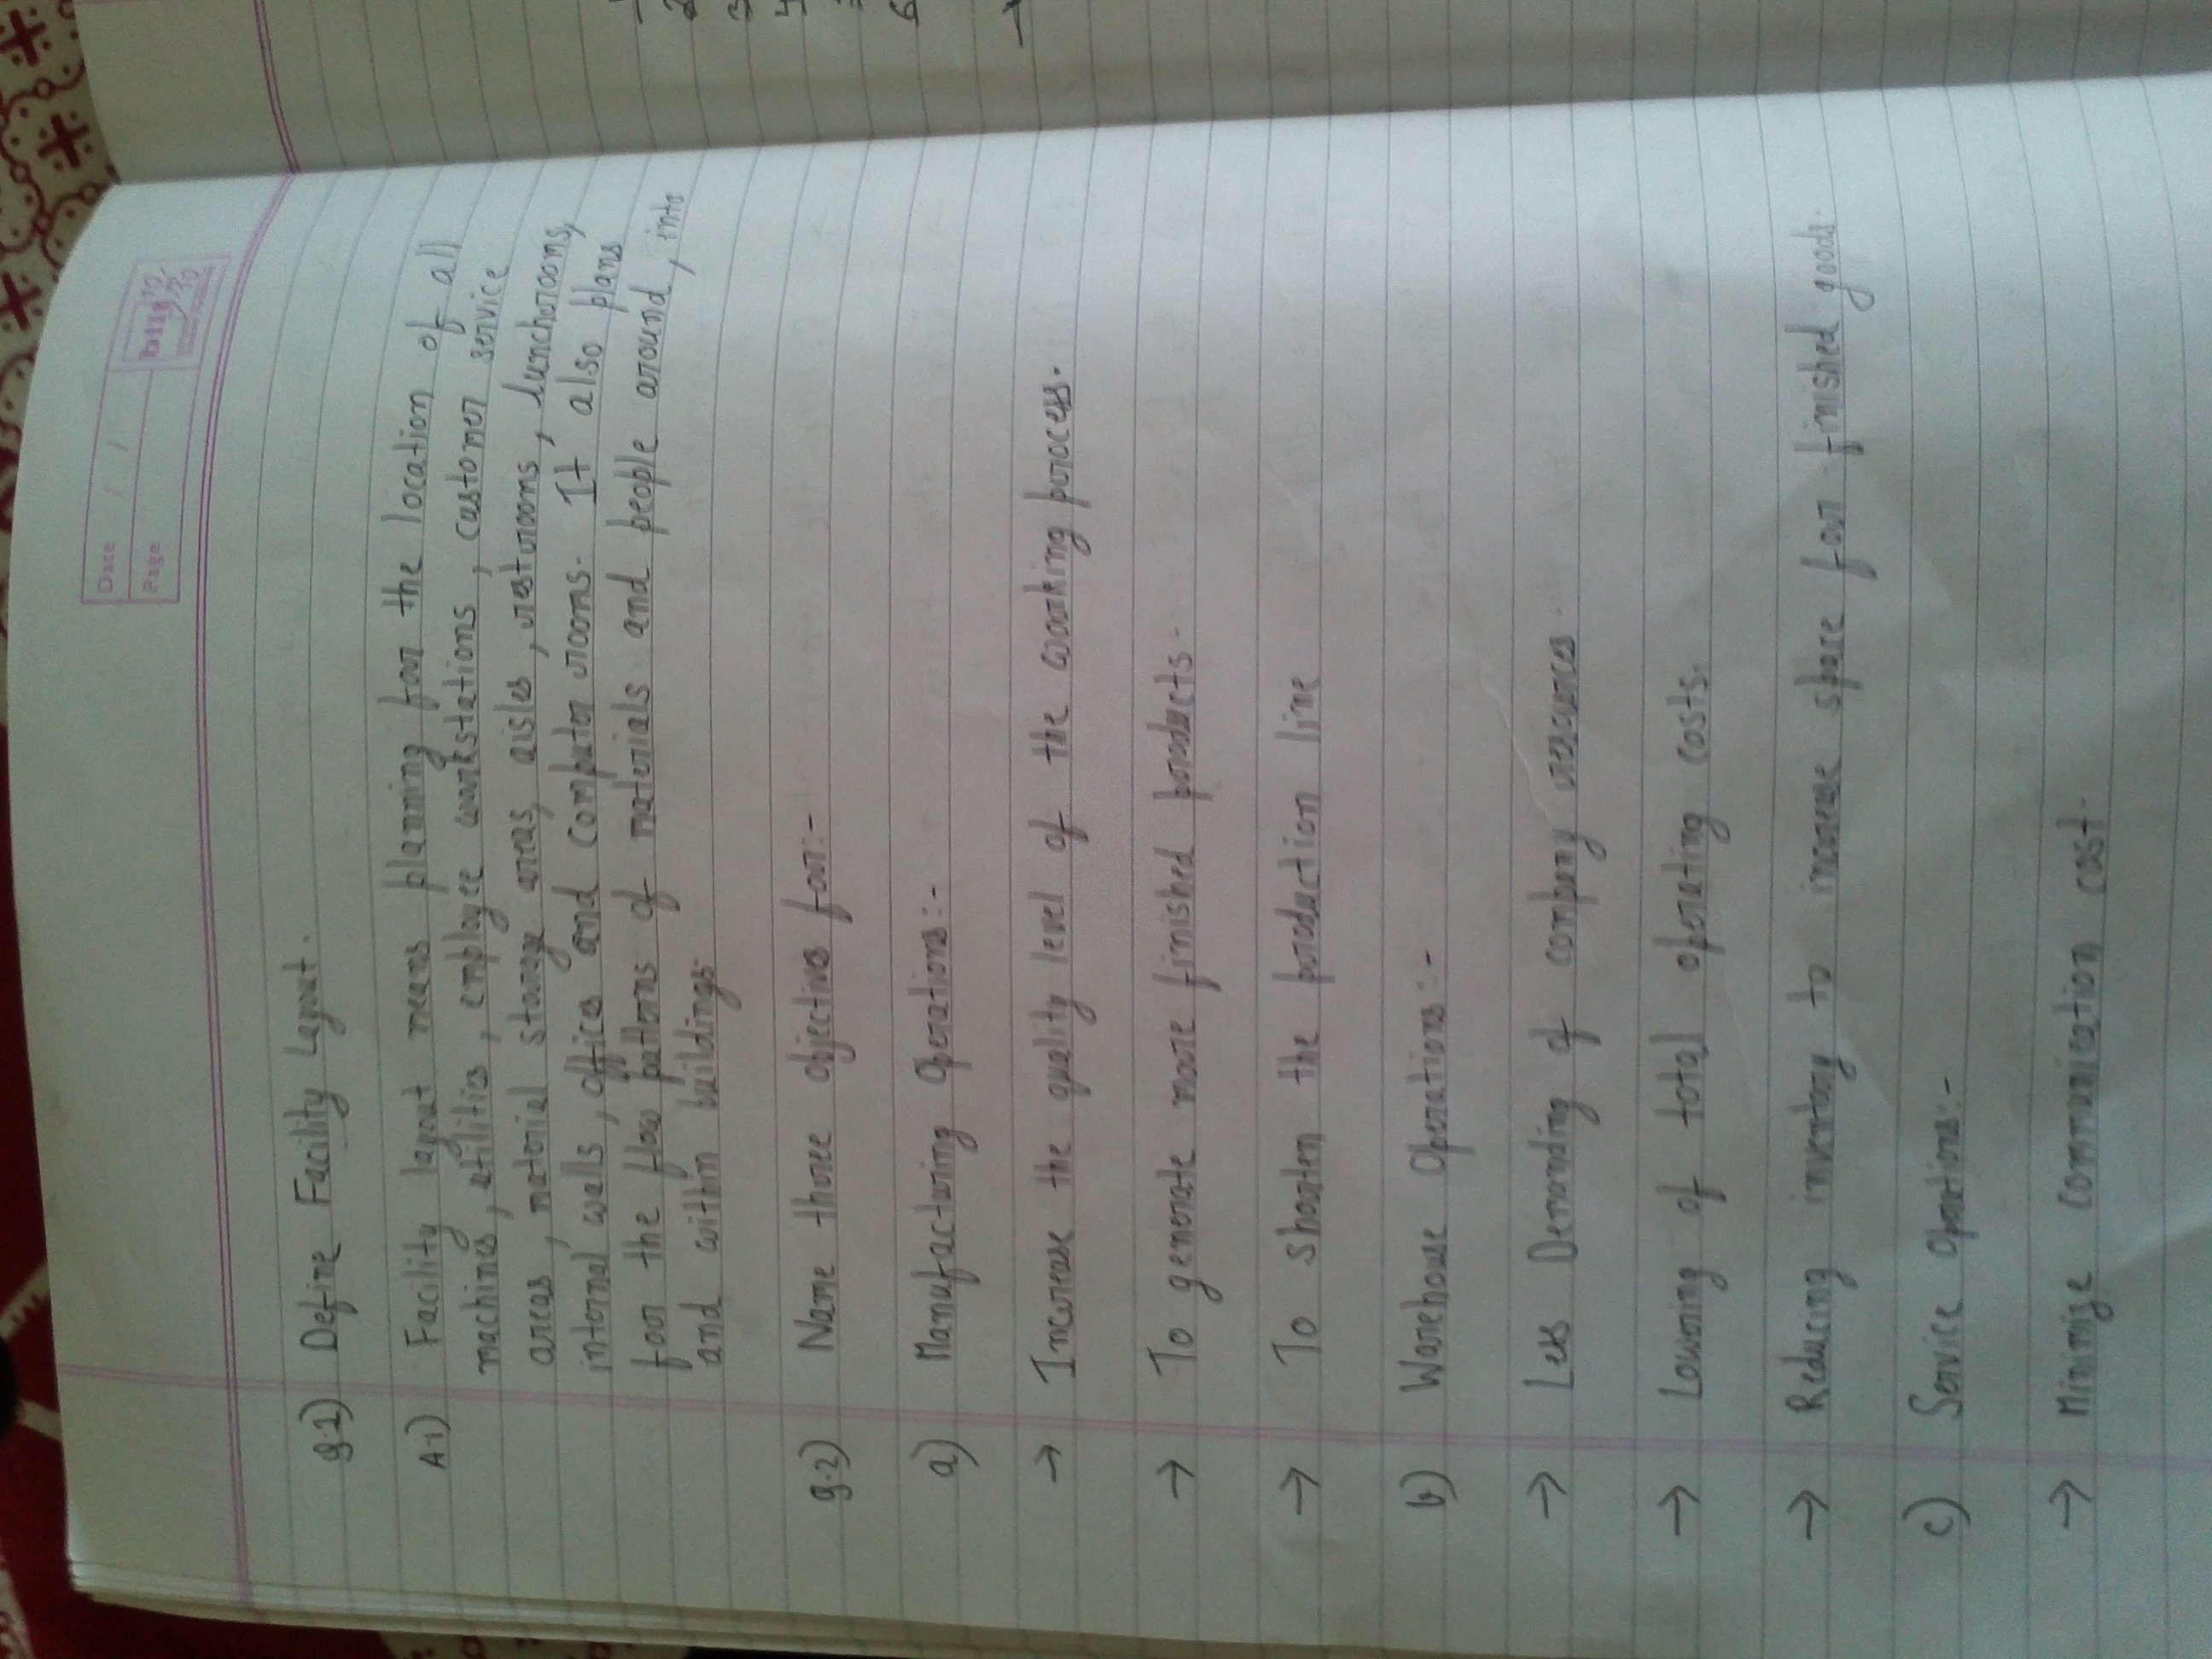 Date / /
Page
Q.1) Define Facility Layout.
A.1) Facility layout means planning for the location of all
machines, utilities, employee workstations, customer service
areas, material storage areas, aisles, restrooms, lunchrooms,
internal walls, offices and computer rooms. It also plans
for the flow patterns of materials and people around, into
and within buildings.
Q.2) Name three objectives for:-
a) Manufacturing Operations:-
→ Increase the quality level of the working process.
→ To generate more finished products.
→ To shorten the production line
b) Warehouse Operations:-
→ Less Demanding of company resources.
→ Lowering of total operating costs.
→ Reducing inventory to increase space for finished goods.
c) Service Operations:-
→ Minimize Communication cost.